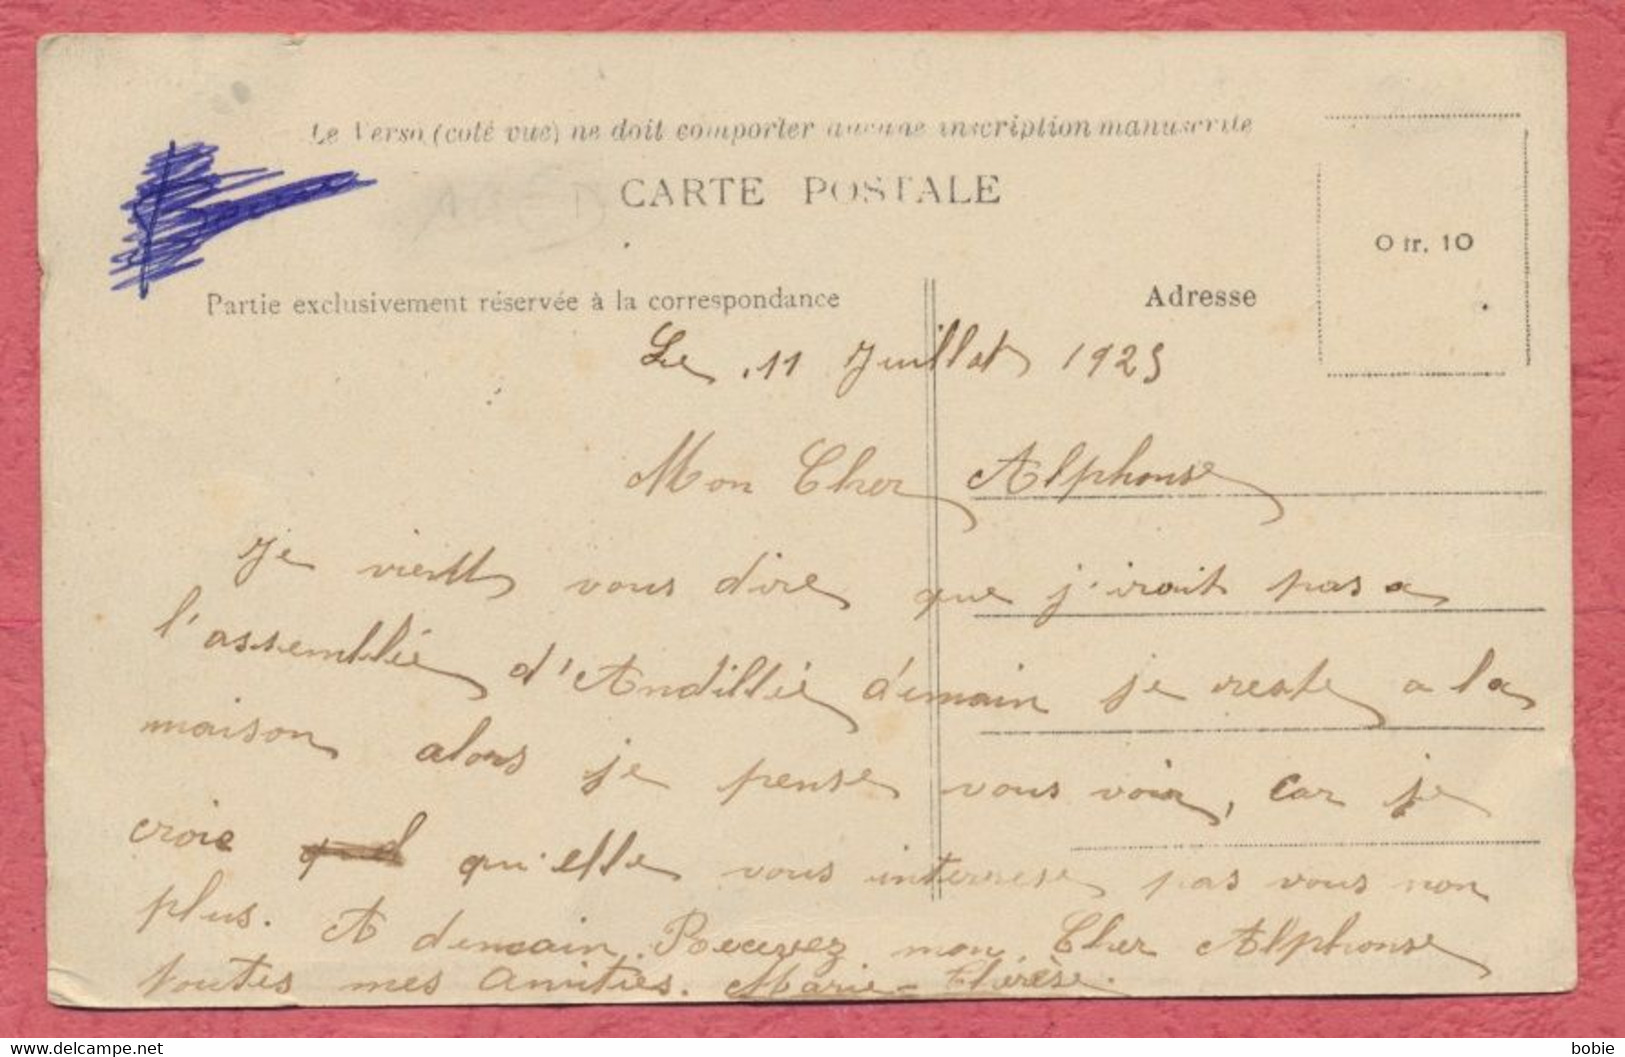 Le Verso (coté vue) ne doit comporter aucune inscription manuscrite
CARTE POSTALE
0 fr. 10
Partie exclusivement réservée à la correspondance
Adresse
Le 11 Juillet 1925
Mon Cher Alphonse
Je viens vous dire que j'irait pas a
l'assemblée d'Andillié demain je reste a la
maison alors je pense vous voir, car je
croie qu'elle vous interrese pas vous non
plus. A demain. Recevez mon Cher Alphonse
toutes mes amitiés. Marie-Thérèse.
delcampe.net
bobie